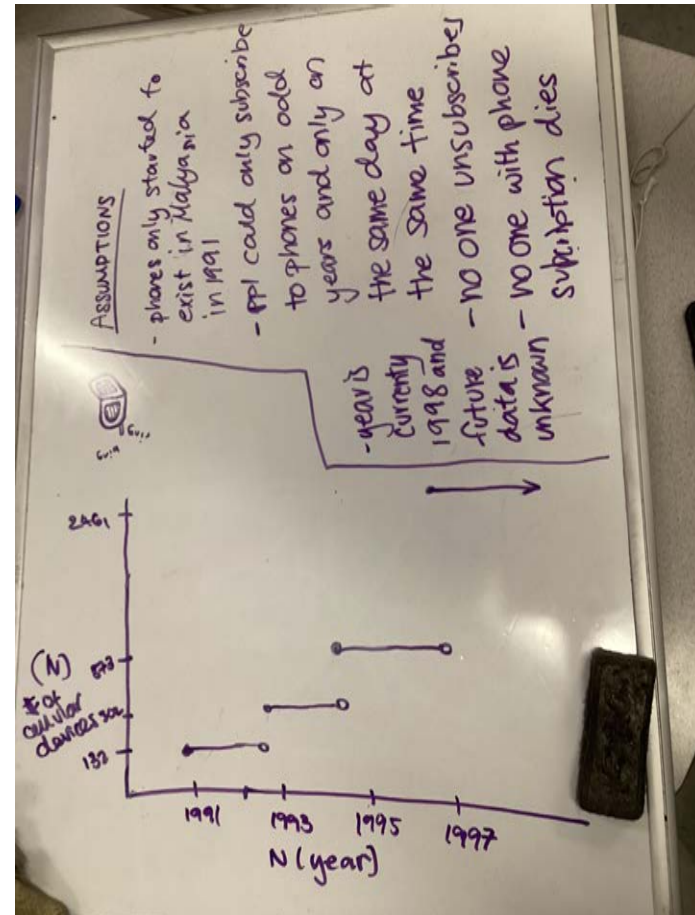 ASSUMPTIONS
- phones only started to
exist in Malyasia
in 1991
- ppl could only subscribe
to phones on odd
years and only on
the same day at
the same time
- no one unsubscribes
- no one with phone
dies
- year is
currently
1998 and
future
data is
unknown
2461
(N)
873
# of
cellular
devices
132
1991
1993
1995
1997
N (year)